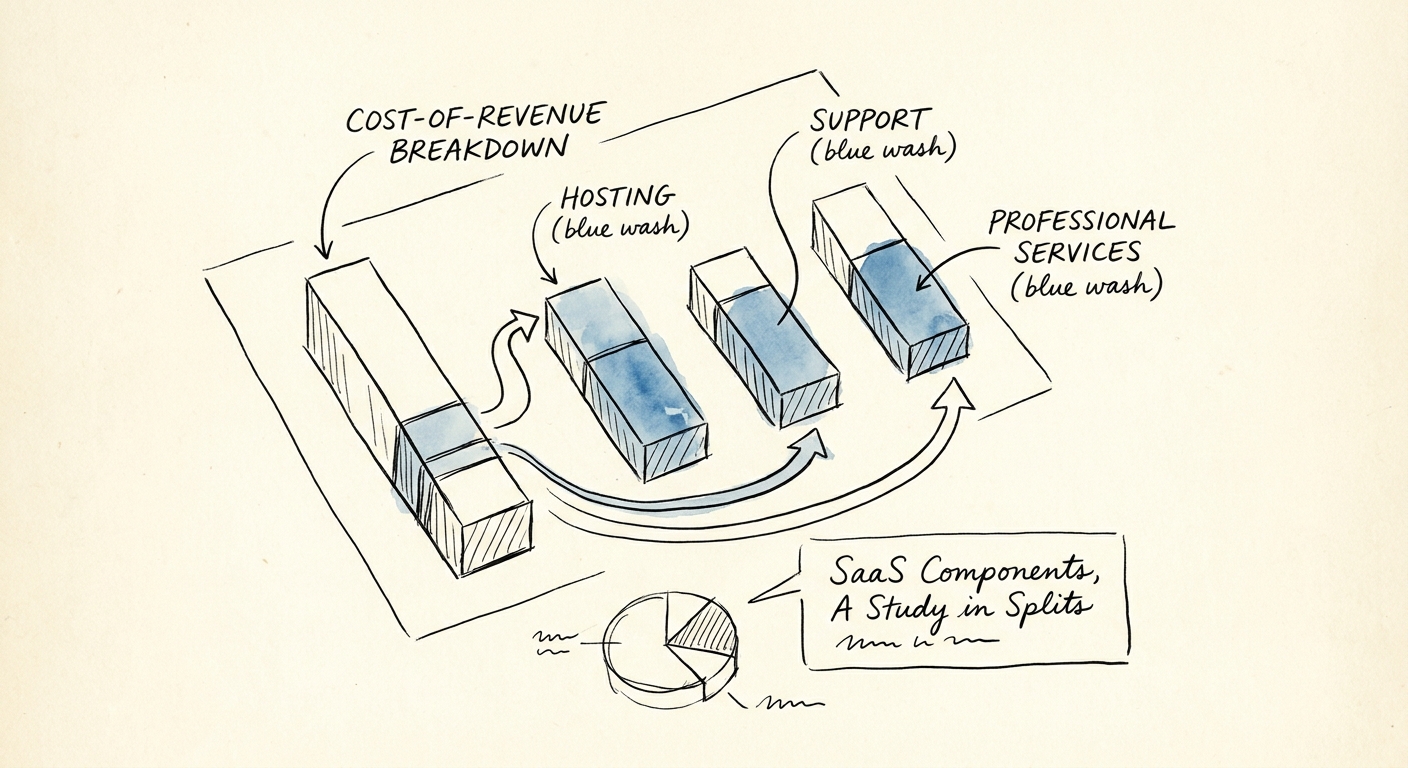 COST-OF-REVENUE
BREAKDOWN
HOSTING
(blue wash)
SUPPORT
(blue wash)
PROFESSIONAL
SERVICES
(blue wash)
SaaS Components,
A Study in Splits